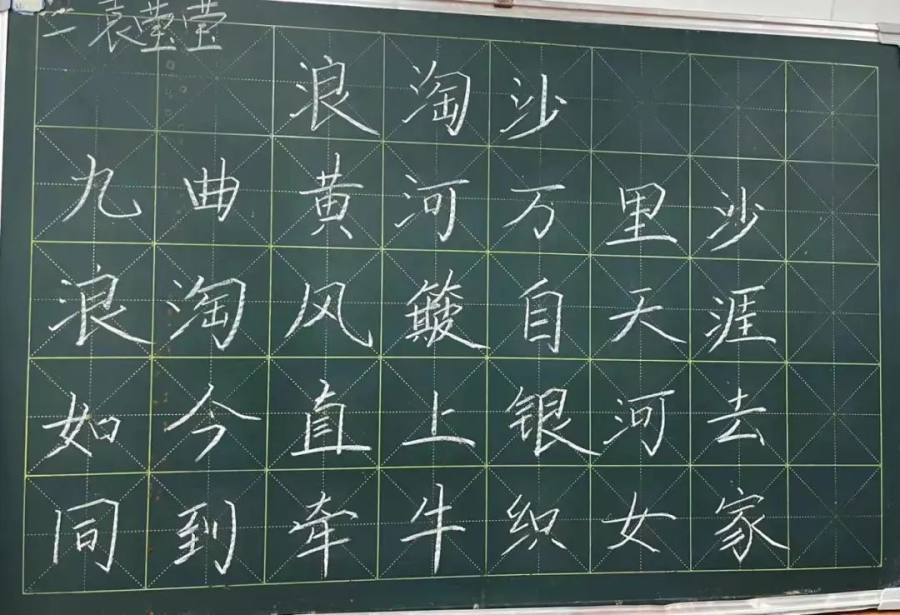 二袁莹莹
浪淘沙
九曲黄河万里沙
浪淘风簸自天涯
如今直上银河去
同到牵牛织女家